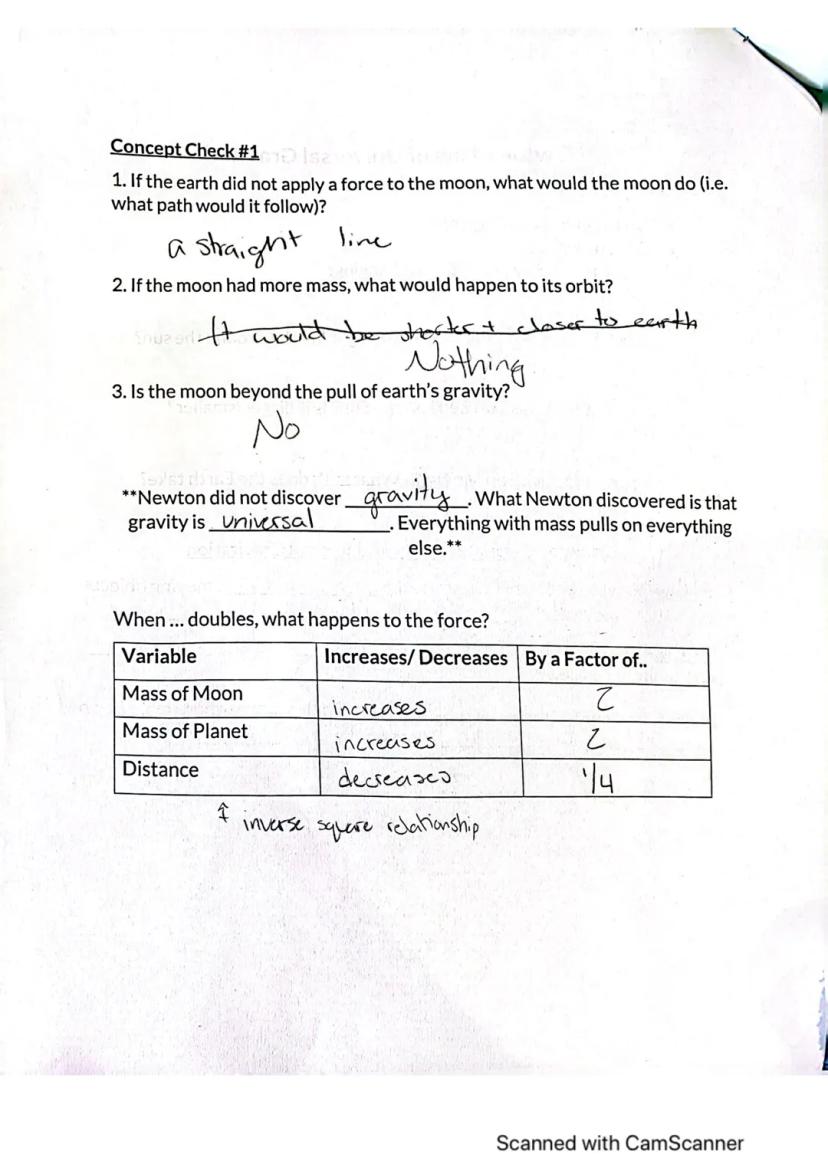 Concept Check #1
1. If the earth did not apply a force to the moon, what would the moon do (i.e.
what path would it follow)?
a straight line
2. If the moon had more mass, what would happen to its orbit?
It would be shorter + closer to earth
Nothing
3. Is the moon beyond the pull of earth's gravity?
No
**Newton did not discover gravity. What Newton discovered is that
gravity is universal. Everything with mass pulls on everything
else.**
When ... doubles, what happens to the force?
Variable Increases/ Decreases By a Factor of..
Mass of Moon increases 2
Mass of Planet increases 2
Distance decreases 1/4
↑ inverse square relationship
Scanned with CamScanner